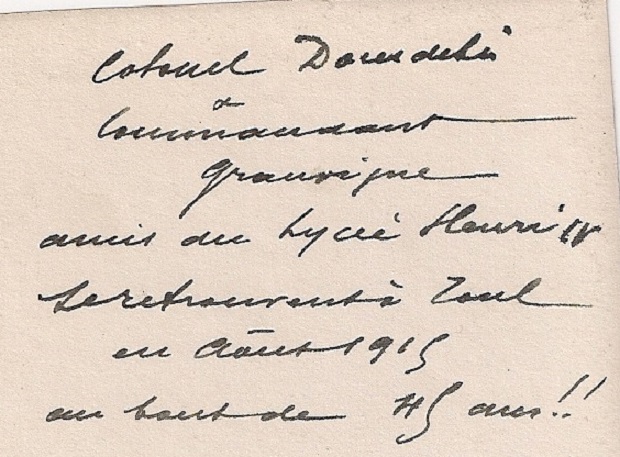 Colonel
&
Commandant
amis du Lycée Henri IV
se retrouvent à Toul
en Août 1915
au bout de 45 ans!!